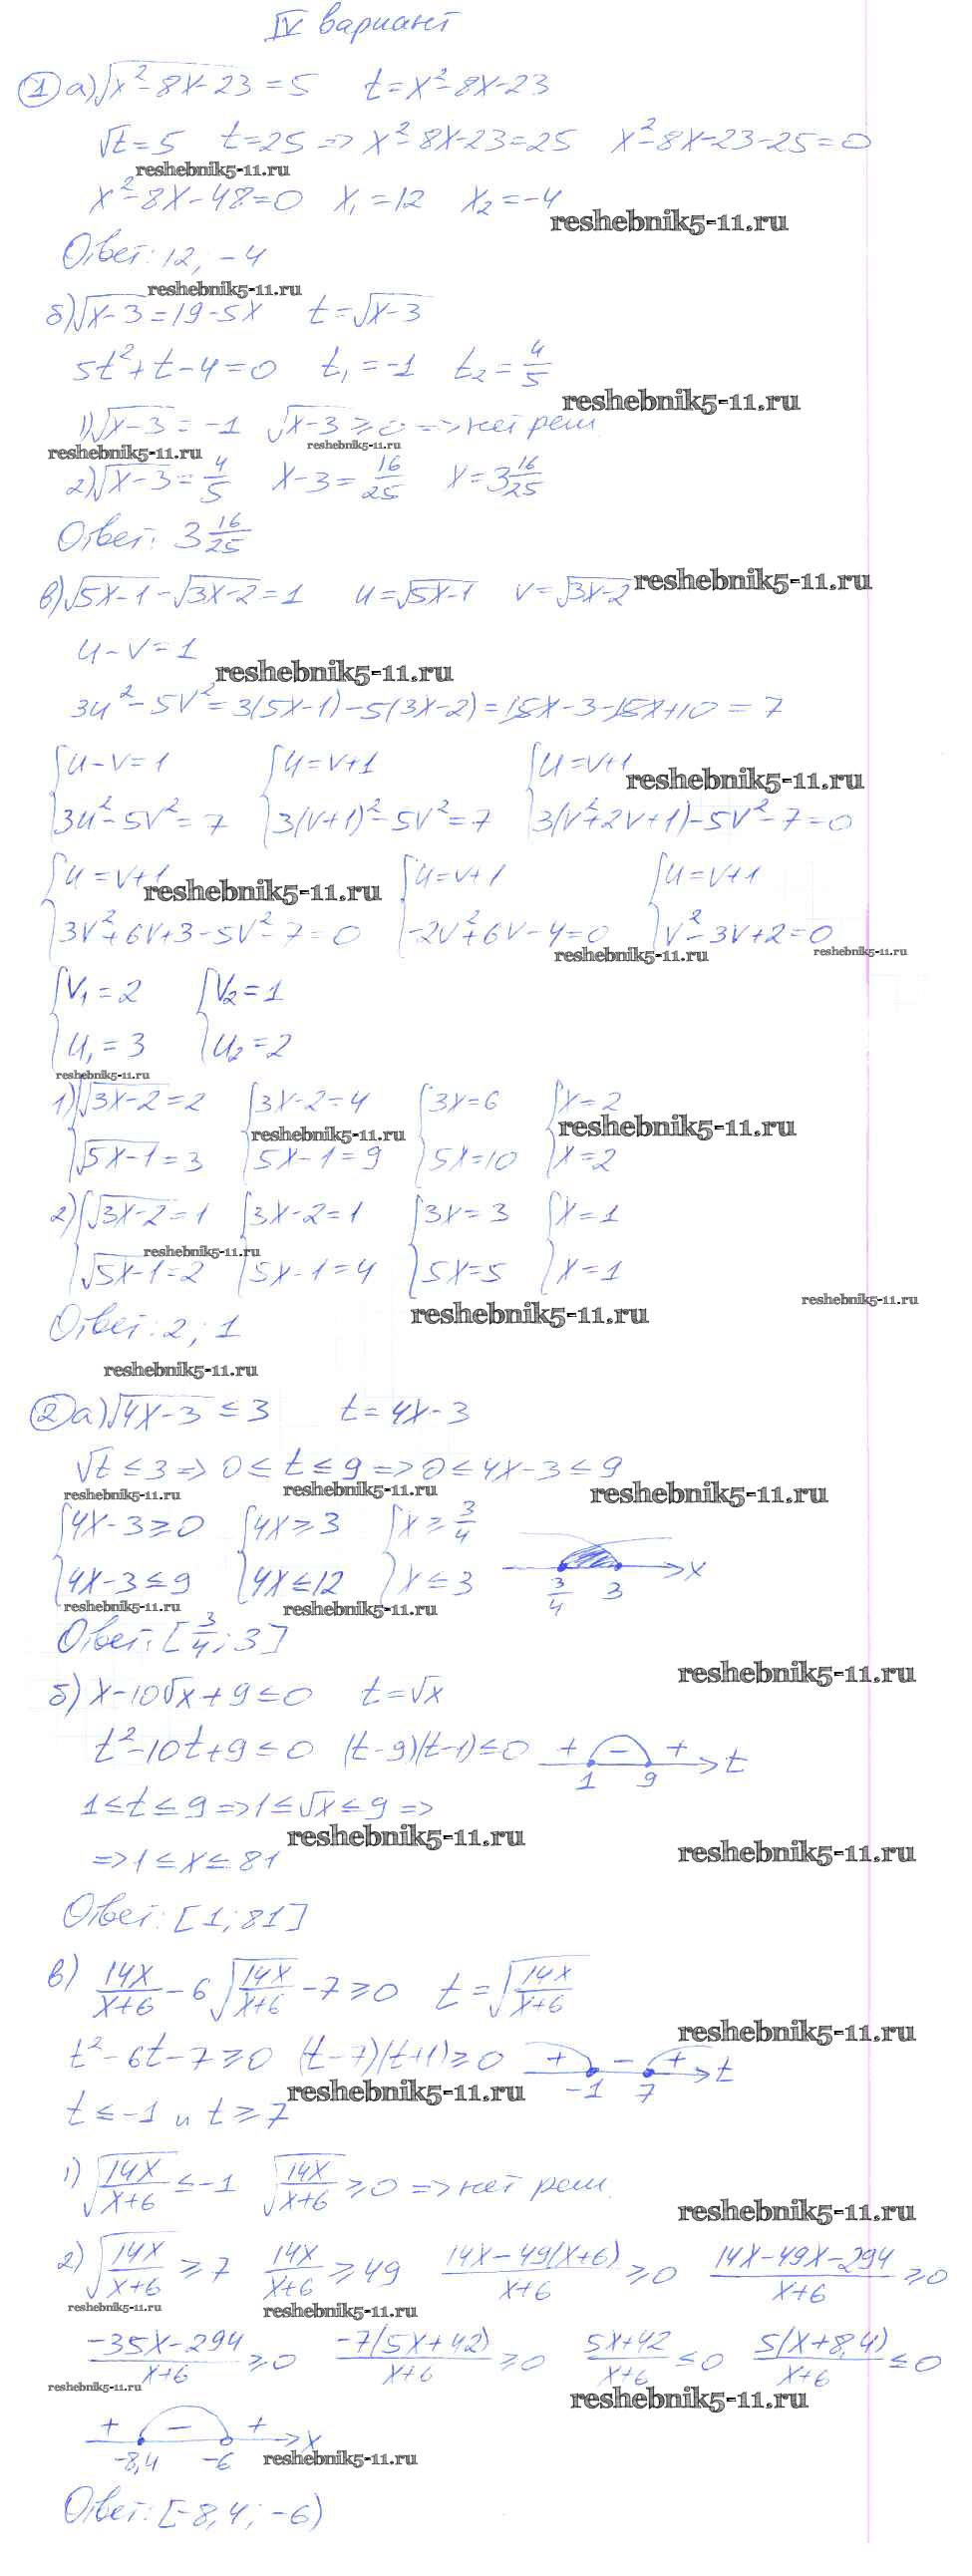 IV вариант
① а) √(x²-8x-23) = 5 t = x²-8x-23
√t = 5 t = 25 => x²-8x-23 = 25 x²-8x-23-25 = 0
reshebnik5-11.ru
x²-8x-48 = 0 x₁ = 12 x₂ = -4
reshebnik5-11.ru
Ответ: 12; -4
reshebnik5-11.ru
б) √(x-3) = 19-5x t = √(x-3)
5t²+t-4 = 0 t₁ = -1 t₂ = 4/5
reshebnik5-11.ru
1) √(x-3) = -1 √(x-3) ≥ 0 => нет реш.
reshebnik5-11.ru reshebnik5-11.ru
2) √(x-3) = 4/5 x-3 = 16/25 x = 3 16/25
Ответ: 3 16/25
в) √(5x-1) - √(3x-2) = 1 u = √(5x-1) v = √(3x-2) reshebnik5-11.ru
u-v = 1
reshebnik5-11.ru
3u²-5v² = 3(5x-1)-5(3x-2) = 15x-3-15x+10 = 7
{u-v = 1 {u = v+1 {u = v+1
reshebnik5-11.ru
3u²-5v² = 7 3(v+1)²-5v² = 7 3(v²+2v+1)-5v²-7 = 0
{u = v+1 {u = v+1 {u = v+1
reshebnik5-11.ru
3v²+6v+3-5v²-7 = 0 -2v²+6v-4 = 0 v²-3v+2 = 0
reshebnik5-11.ru reshebnik5-11.ru
{v₁ = 2 {v₂ = 1
u₁ = 3 u₂ = 2
reshebnik5-11.ru
1) {√(3x-2) = 2 {3x-2 = 4 {3x = 6 {x = 2
reshebnik5-11.ru reshebnik5-11.ru
√(5x-1) = 3 5x-1 = 9 5x = 10 x = 2
2) {√(3x-2) = 1 {3x-2 = 1 {3x = 3 {x = 1
reshebnik5-11.ru
√(5x-1) = 2 5x-1 = 4 5x = 5 x = 1
reshebnik5-11.ru reshebnik5-11.ru
Ответ: 2; 1
reshebnik5-11.ru
② а) √(4x-3) ≤ 3 t = 4x-3
√t ≤ 3 => 0 ≤ t ≤ 9 => 0 ≤ 4x-3 ≤ 9
reshebnik5-11.ru reshebnik5-11.ru reshebnik5-11.ru
{4x-3 ≥ 0 {4x ≥ 3 {x ≥ 3/4
4x-3 ≤ 9 4x ≤ 12 x ≤ 3 3/4 3 x
reshebnik5-11.ru reshebnik5-11.ru
Ответ: [3/4; 3]
reshebnik5-11.ru
б) x-10√x+9 ≤ 0 t = √x
t²-10t+9 ≤ 0 (t-9)(t-1) ≤ 0 + - + 1 9 t
1 ≤ t ≤ 9 => 1 ≤ √x ≤ 9 =>
reshebnik5-11.ru reshebnik5-11.ru
=> 1 ≤ x ≤ 81
Ответ: [1; 81]
в) 14x/(x+6) - 6√(14x/(x+6)) - 7 ≥ 0 t = √(14x/(x+6))
reshebnik5-11.ru
t²-6t-7 ≥ 0 (t-7)(t+1) ≥ 0 + - + -1 7 t
reshebnik5-11.ru
t ≤ -1 и t ≥ 7
1) √(14x/(x+6)) ≤ -1 √(14x/(x+6)) ≥ 0 => нет реш.
reshebnik5-11.ru
2) √(14x/(x+6)) ≥ 7 14x/(x+6) ≥ 49 (14x-49(x+6))/(x+6) ≥ 0 (14x-49x-294)/(x+6) ≥ 0
reshebnik5-11.ru reshebnik5-11.ru
(-35x-294)/(x+6) ≥ 0 -7(5x+42)/(x+6) ≥ 0 (5x+42)/(x+6) ≤ 0 5(x+8,4)/(x+6) ≤ 0
reshebnik5-11.ru reshebnik5-11.ru
+ - + -8,4 -6 x
reshebnik5-11.ru
Ответ: [-8,4; -6)